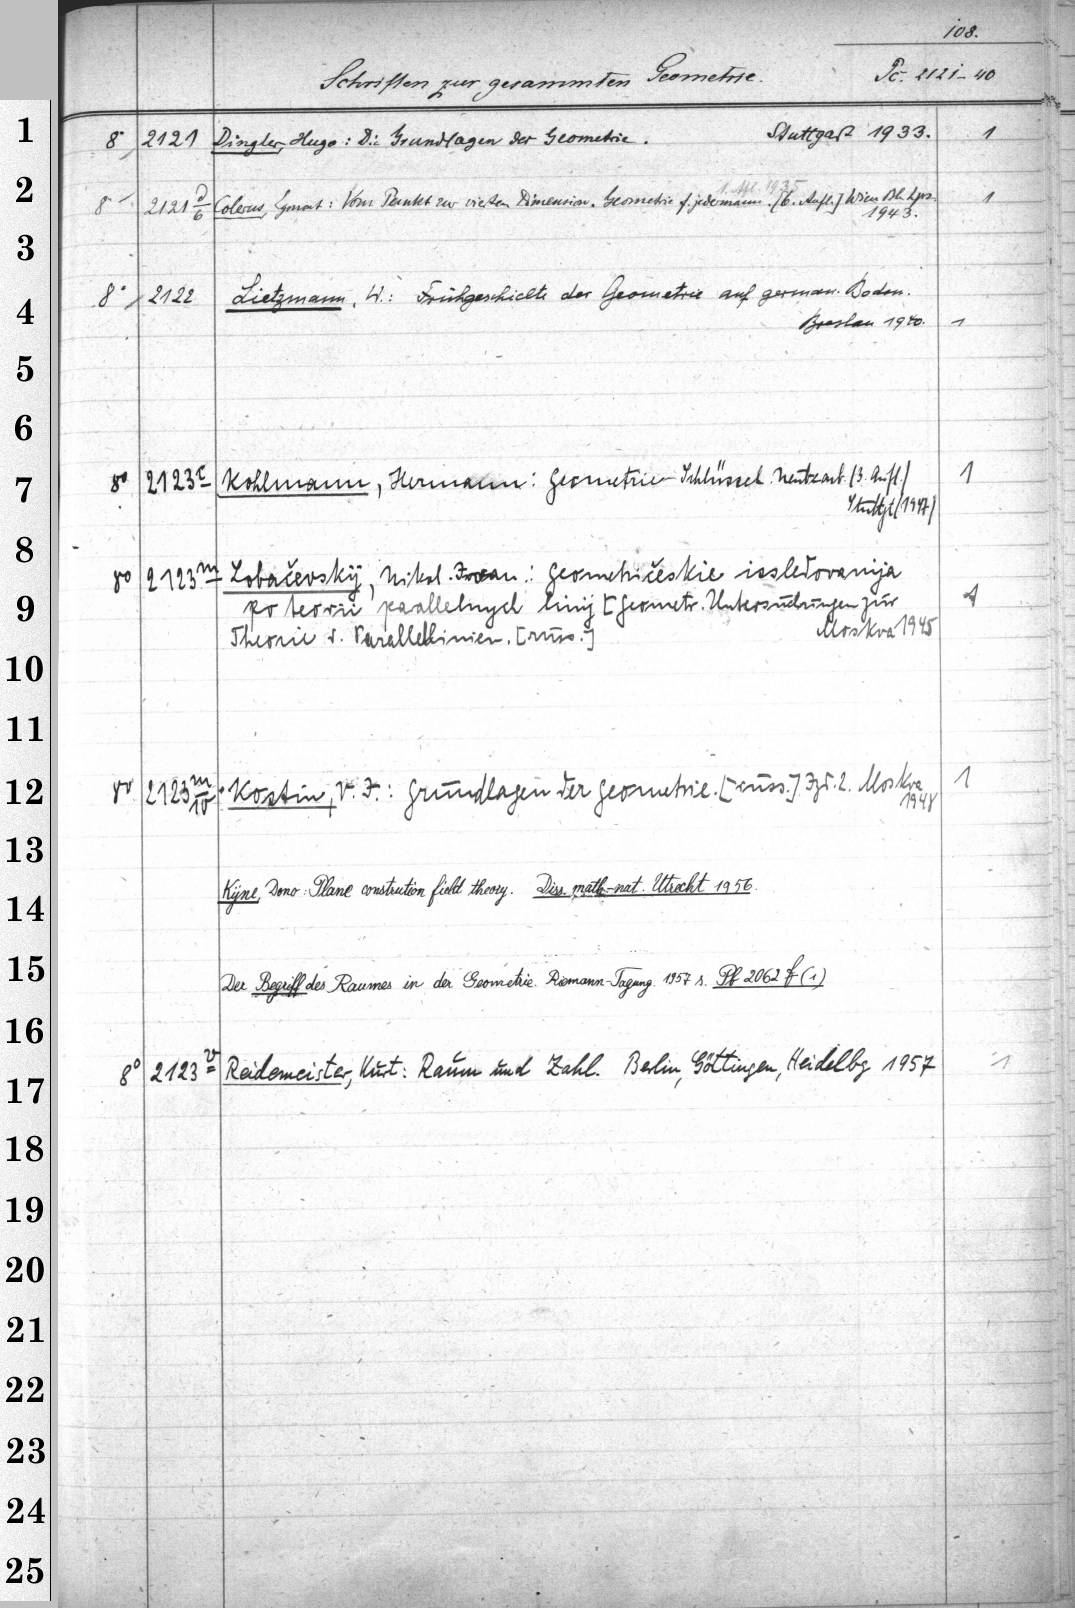 108.
Schriften zur gesammten Geometrie. Pc. 2121-40
1 8° 2121 Dingler, Hugo: Die Grundlagen der Geometrie. Stuttgart 1933. 1
1. Afl. 1935
2 8° 2121 d/6 Colerus, Egmont: Vom Punkt zur vierten Dimension. Geometrie f. jedermann. [6. Aufl.] Wien Bln Lpz. 1
1943.
3
8° 2122 Lietzmann, W.: Frühgeschichte der Geometrie auf german. Boden.
4 Breslau 1940. 1
5
6
7 8° 2123 c Kohlmann, Hermann: Geometrie-Schlüssel. (3. Aufl.) 1
Stuttgt (1947)
8
8° 2123 m Lobačevskij, Nikol. Ivan.: Geometričeskie issledovanija
9 po teorii parallelnych linij [Geometr. Untersuchungen zur 1
Theorie d. Parallellinien. [russ.] Moskva 1945
10
11
12 8° 2123 m/10 Kostin, V. I.: Grundlagen der Geometrie. [russ.] Izd. 2. Moskva 1
1948
13
14 Kijne, Dono: Plane constrution field theory. Diss. math.-nat. Utrecht 1956.
15 Der Begriff des Raumes in der Geometrie. Riemann-Tagung. 1957 s. Pb 2062 f (1)
16
17 8° 2123 v Reidemeister, Kurt: Raum und Zahl. Berlin, Göttingen, Heidelbg 1957 1
18
19
20
21
22
23
24
25